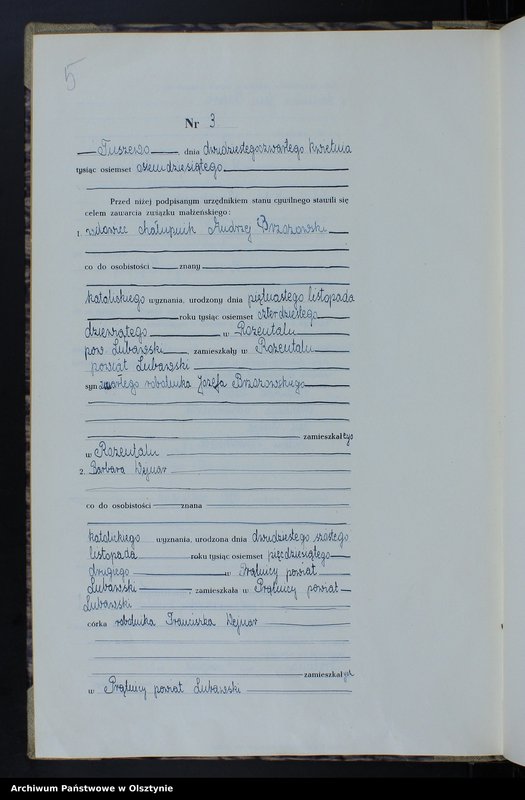 5
Nr 3
Tuszewo, dnia dwudziestegoczwartego kwietnia
tysiąc osiemset osiemdziesiątego
Przed niżej podpisanym urzędnikiem stanu cywilnego stawili się
celem zawarcia związku małżeńskiego:
1. wdowiec chałupnik Andrzej Brzozowski
co do osobistości znany
katolickiego wyznania, urodzony dnia piętnastego listopada
roku tysiąc osiemset czterdziestego
dziewiątego w Rozentalu
pow. Lubawski, zamieszkały w Rozentalu
powiat Lubawski
syn zmarłego robotnika Józefa Brzozowskiego
zamieszkałtys
w Rozentalu
2. Barbara Wejnar
co do osobistości znana
katolickiego wyznania, urodzona dnia dwudziestego szóstego
listopada roku tysiąc osiemset pięćdziesiątego
drugiego w Prątnicy powiat
Lubawski, zamieszkała w Prątnicy powiat
Lubawski
córka robotnika Franciszka Wejnar
zamieszkał
w Prątnicy powiat Lubawski
Archiwum Państwowe w Olsztynie